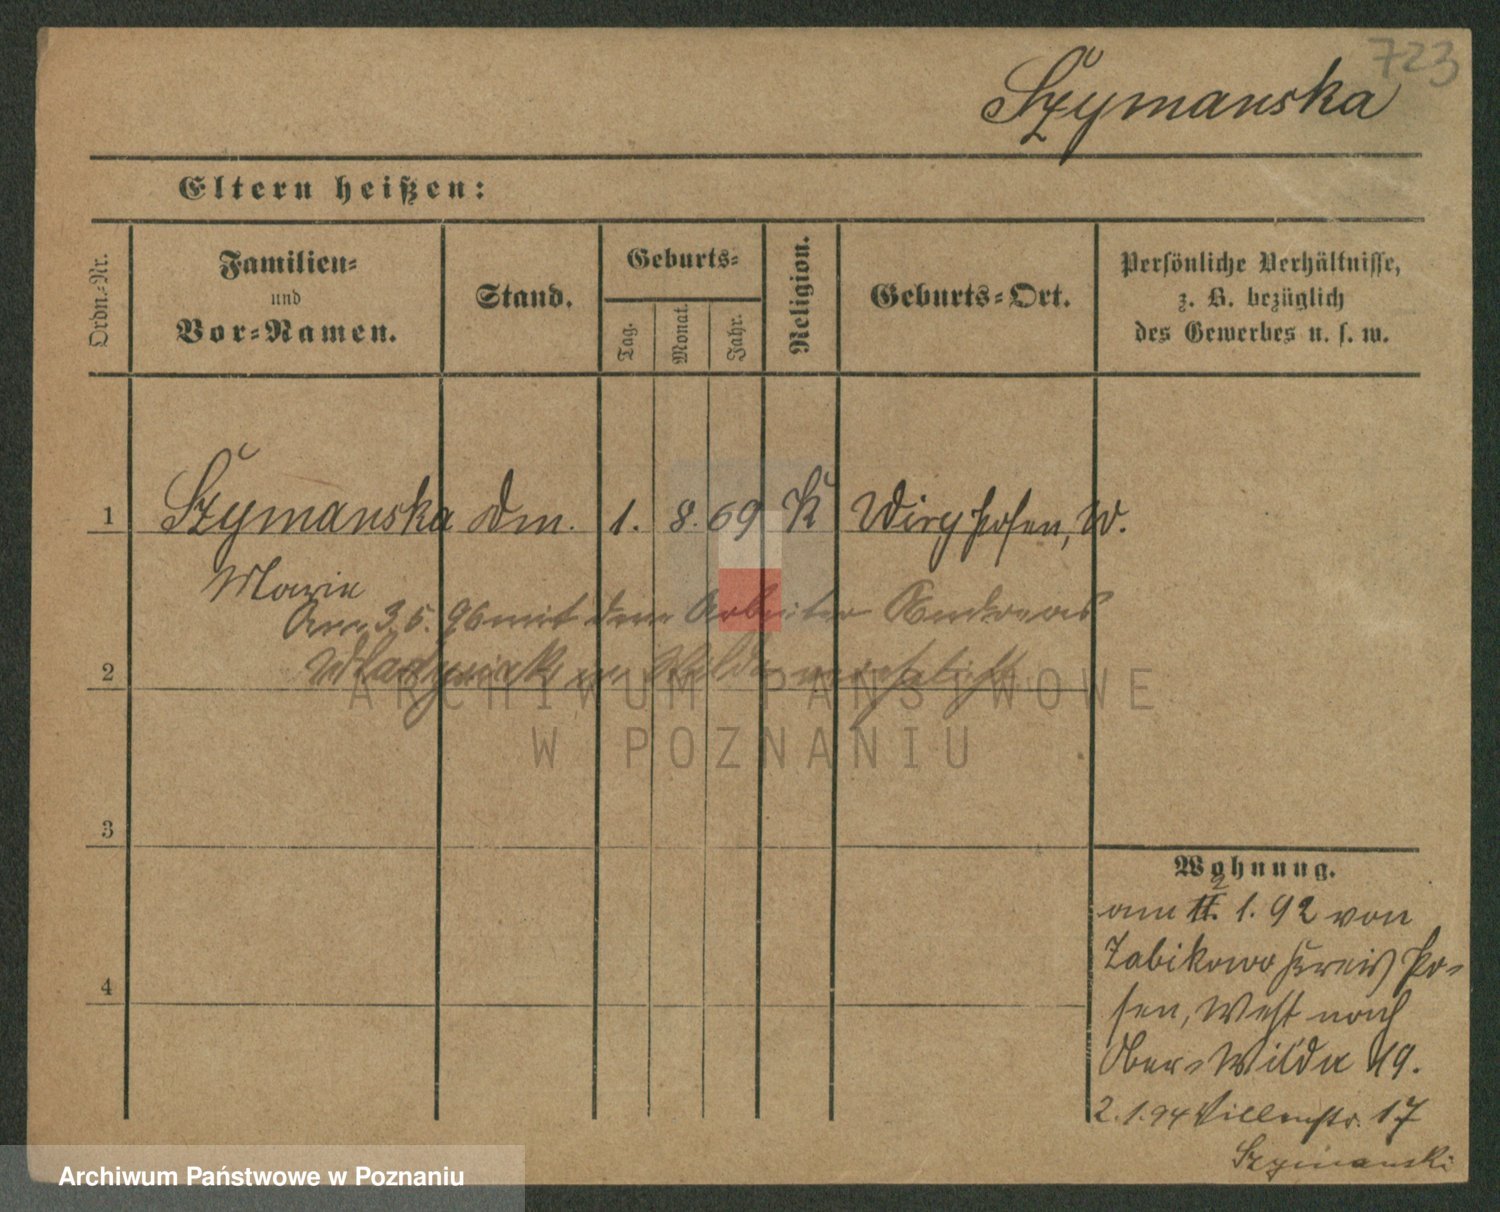 723
Szymanska
Eltern heißen:
Ordn.-Nr.
Familien-
und
Vor-Namen.
Stand.
Geburts-
Tag.
Monat.
Jahr.
Religion.
Geburts-Ort.
Persönliche Verhältnisse,
z. B. bezüglich
des Gewerbes u. s. w.
1 Szymanska Dm. 1. 8. 69 K W.
Marie
Am 3.5.96 mit dem Arbeiter Andreas
in Wilda verehelicht
2
ARCHIWUM PAŃSTWOWE
W POZNANIU
3
4
Wohnung.
am 2. 1. 92 von
Zabikowo Kreis Po-
sen, West nach
Ober-Wilda 49.
2.1.94 Villenstr. 17
Szymanski
Archiwum Państwowe w Poznaniu